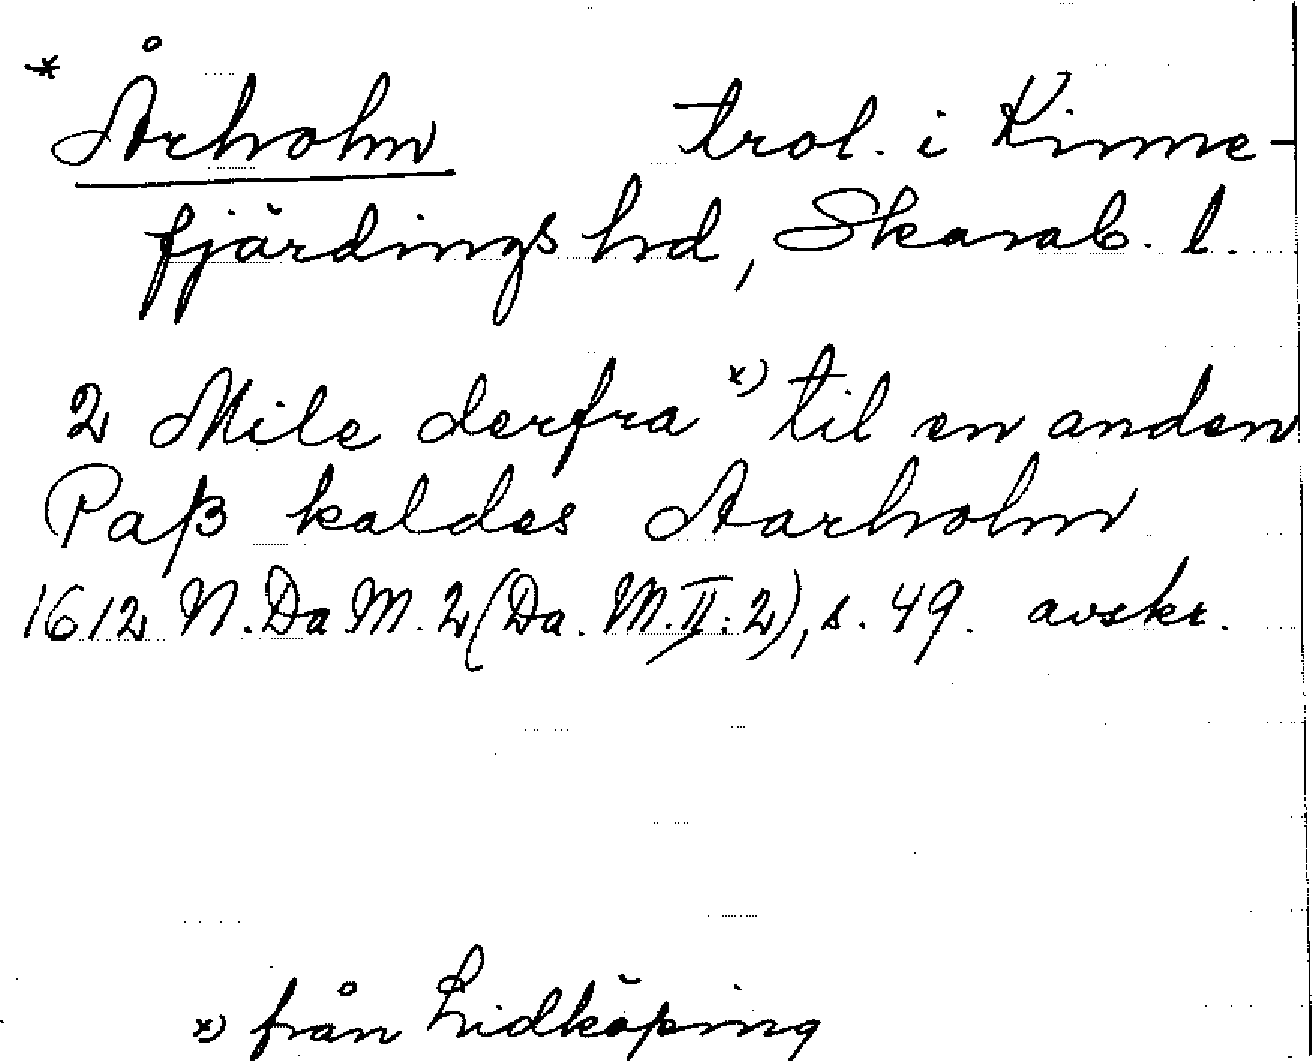 * Århohn trol. i Kinne-
fjärdings hrd, Skarab. l.
2 Mile derfra x) til en anden
Paß kaldes Aarhohn
1612 N. Da M. 2 (Da. M. II: 2), s. 49. avskr.
x) från Lidköping